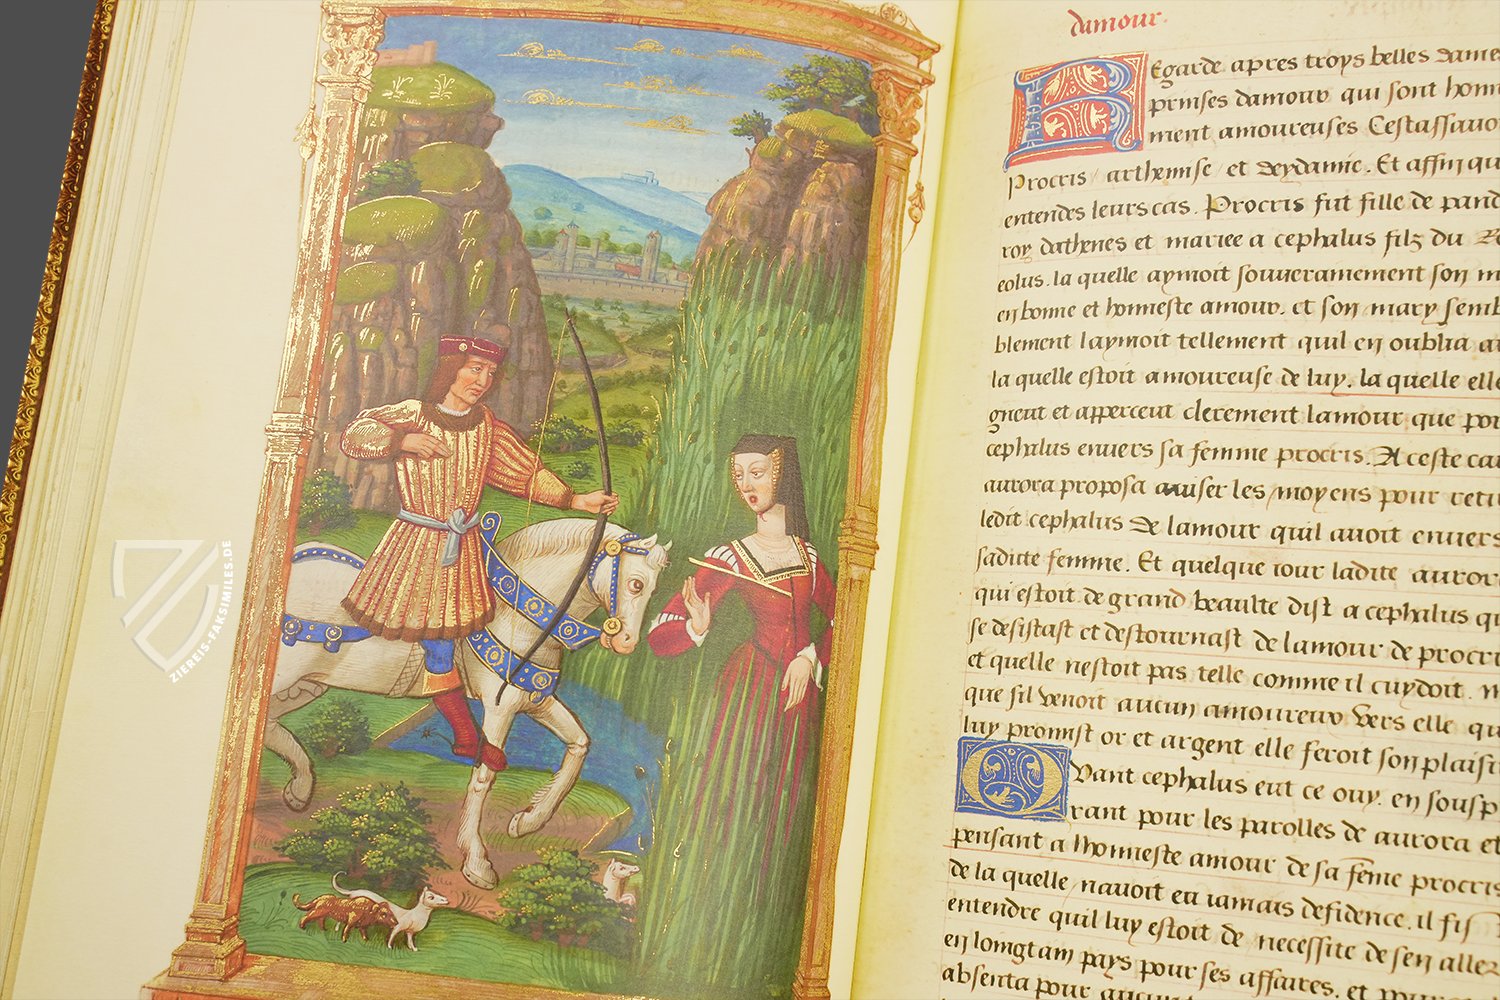 damour.
Regarde apres troys belles dames
prinses damour qui sont honn
ment amoureuses Cestassavo
Procris / arthemise / et deydamie. Et affin qu
entendes leurs cas. Procris fut fille de pand
roy dathenes et mariee a cephalus filz du R
eolus. la quelle aymoit souveramement son m
en bonne et honneste amour. et son mary semb
blement laymoit tellement quil en oublia au
la quelle estoit amoureuse de luy. la quelle elle
gneut et apperceut clerement lamour que por
cephalus envers sa femme procris. A ceste cau
aurora proposa auiser les moyens pour retir
ledit cephalus de lamour quil avoit envers
saditte femme. Et quelque iour ladite aurore
qui estoit de grand beaulte dist a cephalus qu
se desistast et destournast de lamour de procri
et quelle nestoit pas telle comme il cuydoit. m
que sil venoit aucun amoureux vers elle qu
luy promist or et argent elle feroit son plaisi
Quant cephalus eut ce ouy. en sousp
rant pour les parolles de aurora et
pensant a lhonneste amour de sa feme procris
de la quelle navoit eu iamais defidence. il fis
entendre quil luy estoit de necessite de sen aller
en loingtam pays pour ses affaires. et pour
absenta pour aucun
ZIEREIS-FAKSIMILES.DE